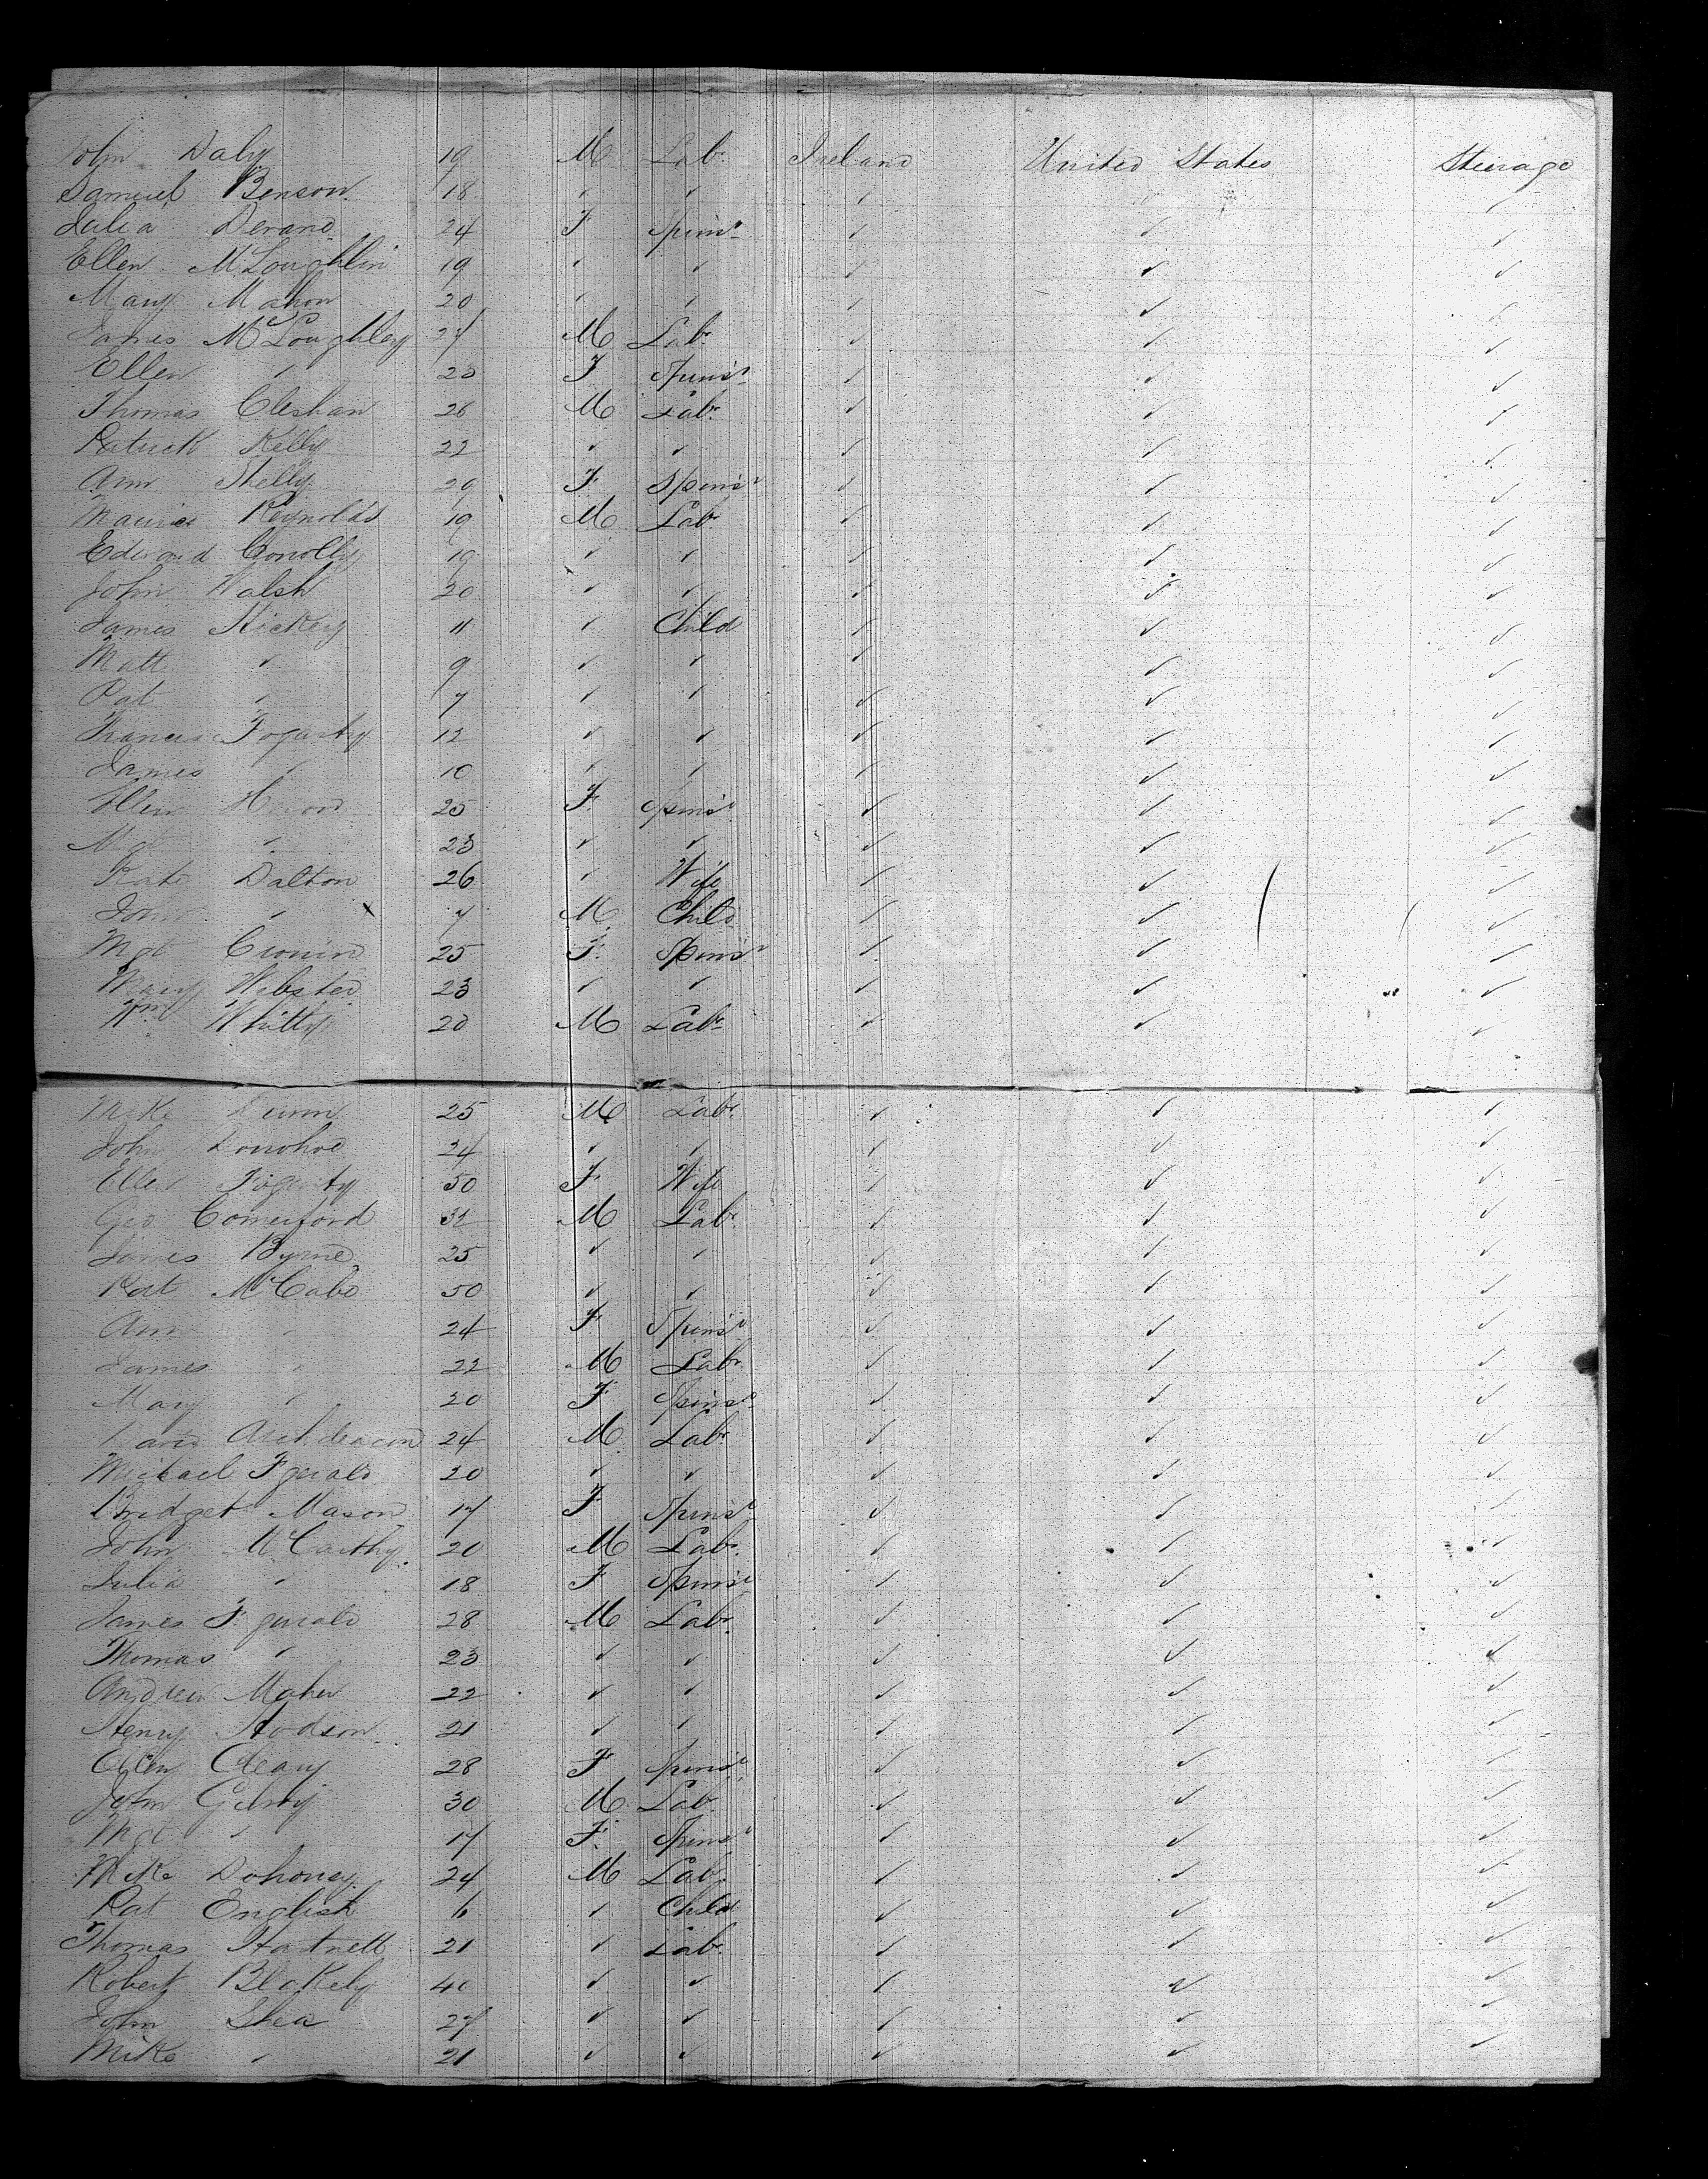 John Daly 19 M Lab. Ireland United States Steerage
Samuel Benson 18 " " " " "
Julia Devane 24 F Spinsr " " "
Ellen McLoughlin 19 " " " " "
Mary Mahon 20 " " " " "
James McLoughley 27 M Labr " " "
Ellen " 20 F Spinsr " " "
Thomas Cleshan 26 M Labr " " "
Patrick Kelly 22 " " " " "
Ann Skelly 29 F Spinsr " " "
Maurice Reynolds 19 M Lab " " "
Edward Conolly 19 " " " " "
John Walsh 20 " " " " "
James Hickey 11 " Child " " "
Matt " 9 " " " " "
Pat " 7 " " " " "
Francis Fogarty 12 " " " " "
James " 10 " " " " "
Ellen 25 F Spinsr " " "
" 23 " " " " "
Kate Dalton 26 " Wife " " "
John " 7 M Child " " "
Mgt Cronin 25 F. Spinsr " " "
Mary Webster 23 " " " " "
Wm Whitty 20 M Labr " " "
Mike 25 M Labr " " "
John Donohoe 24 " " " " "
Ellen Fogarty 30 F Wife " " "
Geo Comerford 32 M Labr " " "
James Byrne 25 " " " " "
Pat McCabe 50 " " " " "
Ann " 24 F Spinsr " " "
James " 22 M Labr " " "
Mary " 20 F Spinsr " " "
Archdeacon 24 M Labr " " "
Michael Fgerald 20 " " " " "
Bridget Mason 17 F Spinsr " " "
John McCarthy 20 M Labr " " "
Julia " 18 F Spinsr " " "
James F.gerald 28 M Labr " " "
Thomas " 23 " " " " "
Andrew Maher 22 " " " " "
Henry Hodson 21 " " " " "
Cleary 28 F Spinsr " " "
John 30 M Lab " " "
Mgt " 17 F. Spinsr " " "
Mike Dohoney 24 M Lab. " " "
Pat English 6 " Child " " "
Thomas Hartnell 21 " Lab. " " "
Robert Blakely 40 " " " " "
John Shea 27 " " " " "
Mike " 21 " " " " "